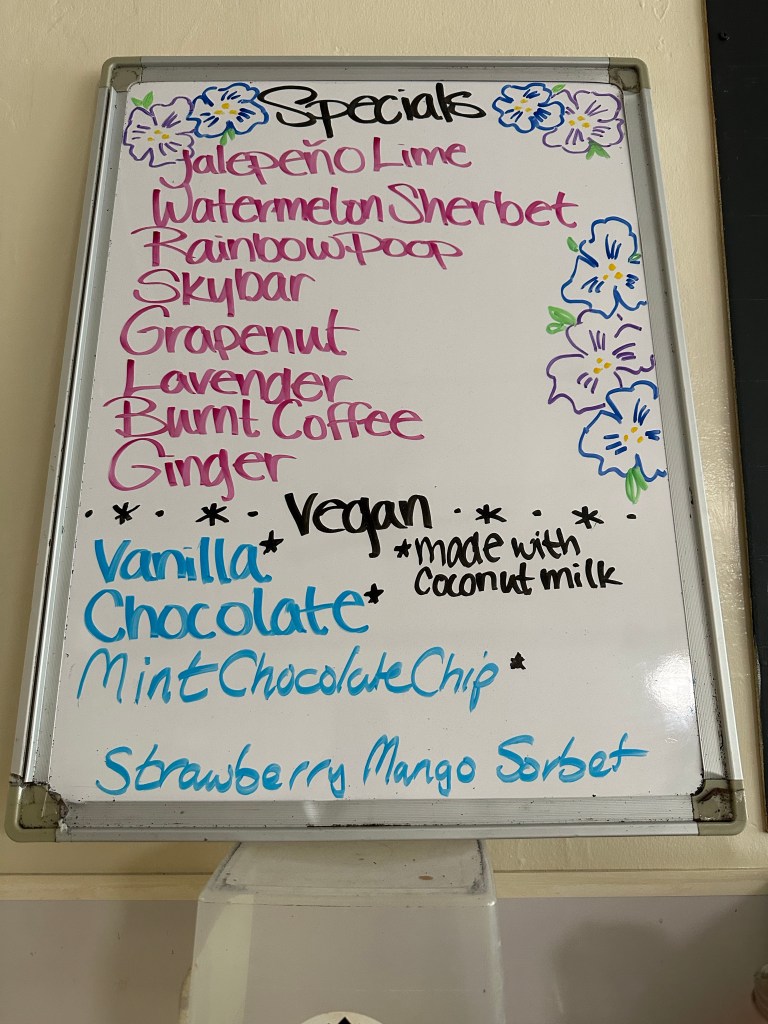 Specials
Jalepeño Lime
Watermelon Sherbet
Rainbow Poop
Skybar
Grapenut
Lavender
Burnt Coffee
Ginger
· * · * · Vegan · * · * ·
Vanilla*
*made with
coconut milk
Chocolate*
Mint Chocolate Chip *
Strawberry Mango Sorbet